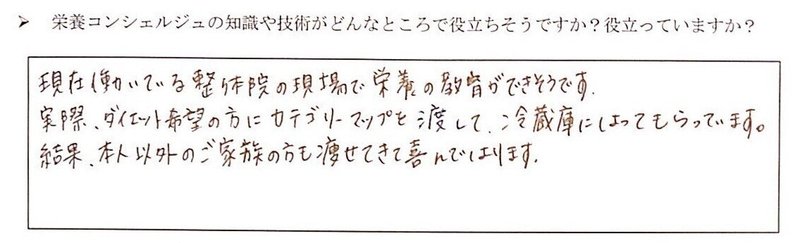 ➤ 栄養コンシェルジュの知識や技術がどんなところで役立ちそうですか？役立っていますか？
現在働いている整体院の現場で栄養の教育ができそうです.
実際、ダイエット希望の方にカテゴリーマップを渡して、冷蔵庫にはってもらっています。
結果、本人以外のご家族の方も痩せてきて喜んではります.